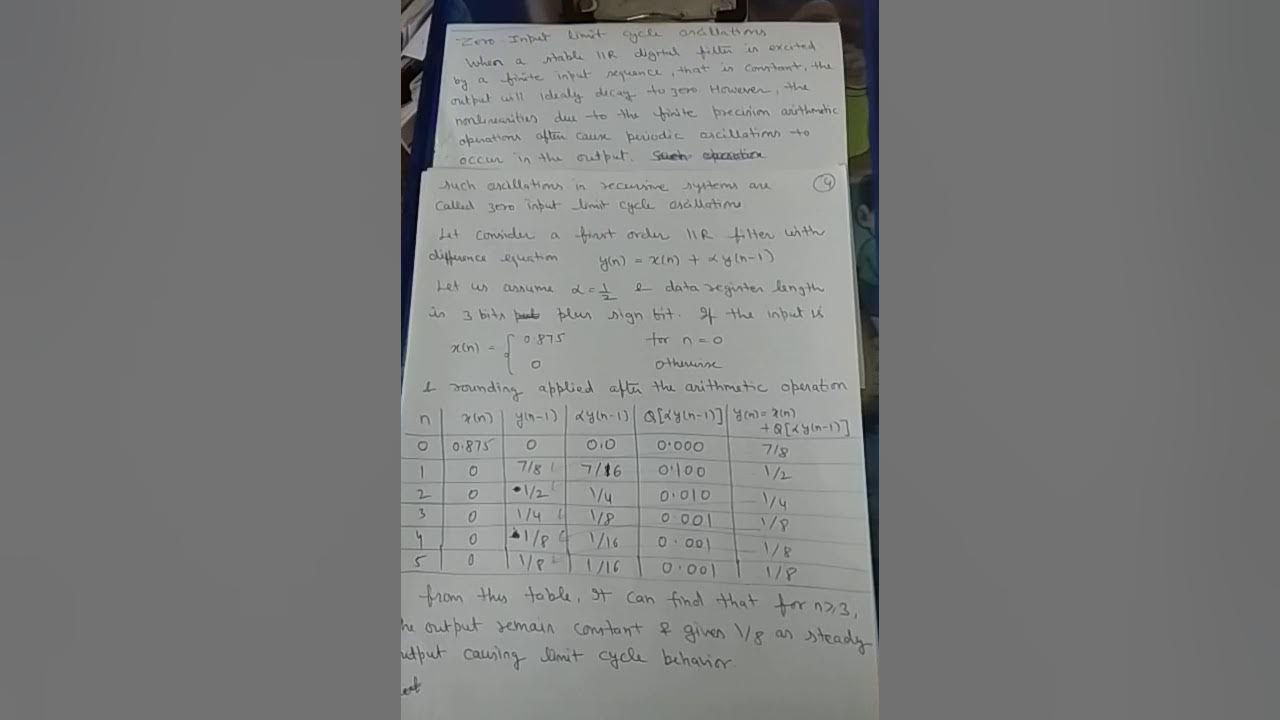 Zero Input limit cycle oscillations
When a stable IIR digital filter is excited
by a finite input sequence, that is constant, the
output will idealy decay to zero. However, the
nonlinearities due to the finite precision arithmetic
operations often cause periodic oscillations to
occur in the output. Such operation
such oscillations in recursive systems are
called zero input limit cycle oscillations
4
Let consider a first order IIR filter with
difference equation y(n) = x(n) + αy(n-1)
Let us assume α = 1/2 & data register length
is 3 bits put plus sign bit. If the input is
x(n) = { 0.875 for n = 0
0 otherwise
& rounding applied after the arithmetic operation
n x(n) y(n-1) αy(n-1) Q[αy(n-1)] y(n) = x(n)
+ Q[αy(n-1)]
0 0.875 0 0.0 0.000 7/8
1 0 7/8 7/16 0.100 1/2
2 0 1/2 1/4 0.010 1/4
3 0 1/4 1/8 0.001 1/8
4 0 1/8 1/16 0.001 1/8
5 0 1/8 1/16 0.001 1/8
from this table, It can find that for n≥3,
he output remain constant & gives 1/8 as steady
utput causing limit cycle behavior.